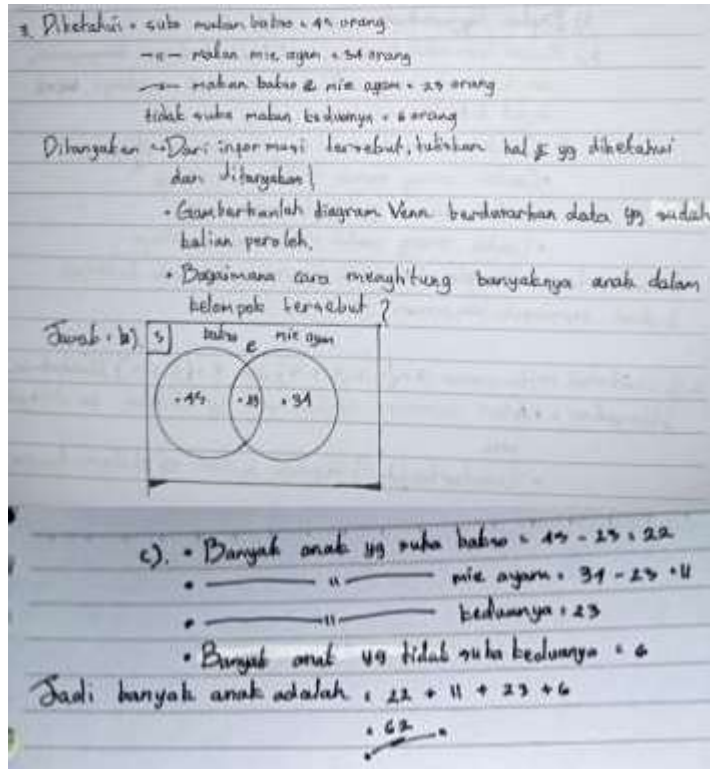 3. Diketahui : suka makan bakso = 45 orang
—"— makan mie ayam = 34 orang
—"— makan bakso & mie ayam = 23 orang
tidak suka makan keduanya = 6 orang
Ditanyakan • Dari informasi tersebut, tuliskan hal² yg diketahui
dan ditanyakan!
• Gambarkanlah diagram Venn berdasarkan data yg sudah
kalian peroleh.
• Bagaimana cara menghitung banyaknya anak dalam
kelompok tersebut?
Jawab : b) S bakso e mie ayam
• 45 • 23 • 34
c). • Banyak anak yg suka bakso = 45 - 23 = 22
• —"— mie ayam = 34 - 23 = 11
• —"— keduanya = 23
• Banyak anak yg tidak suka keduanya = 6
Jadi banyak anak adalah = 22 + 11 + 23 + 6
= 62